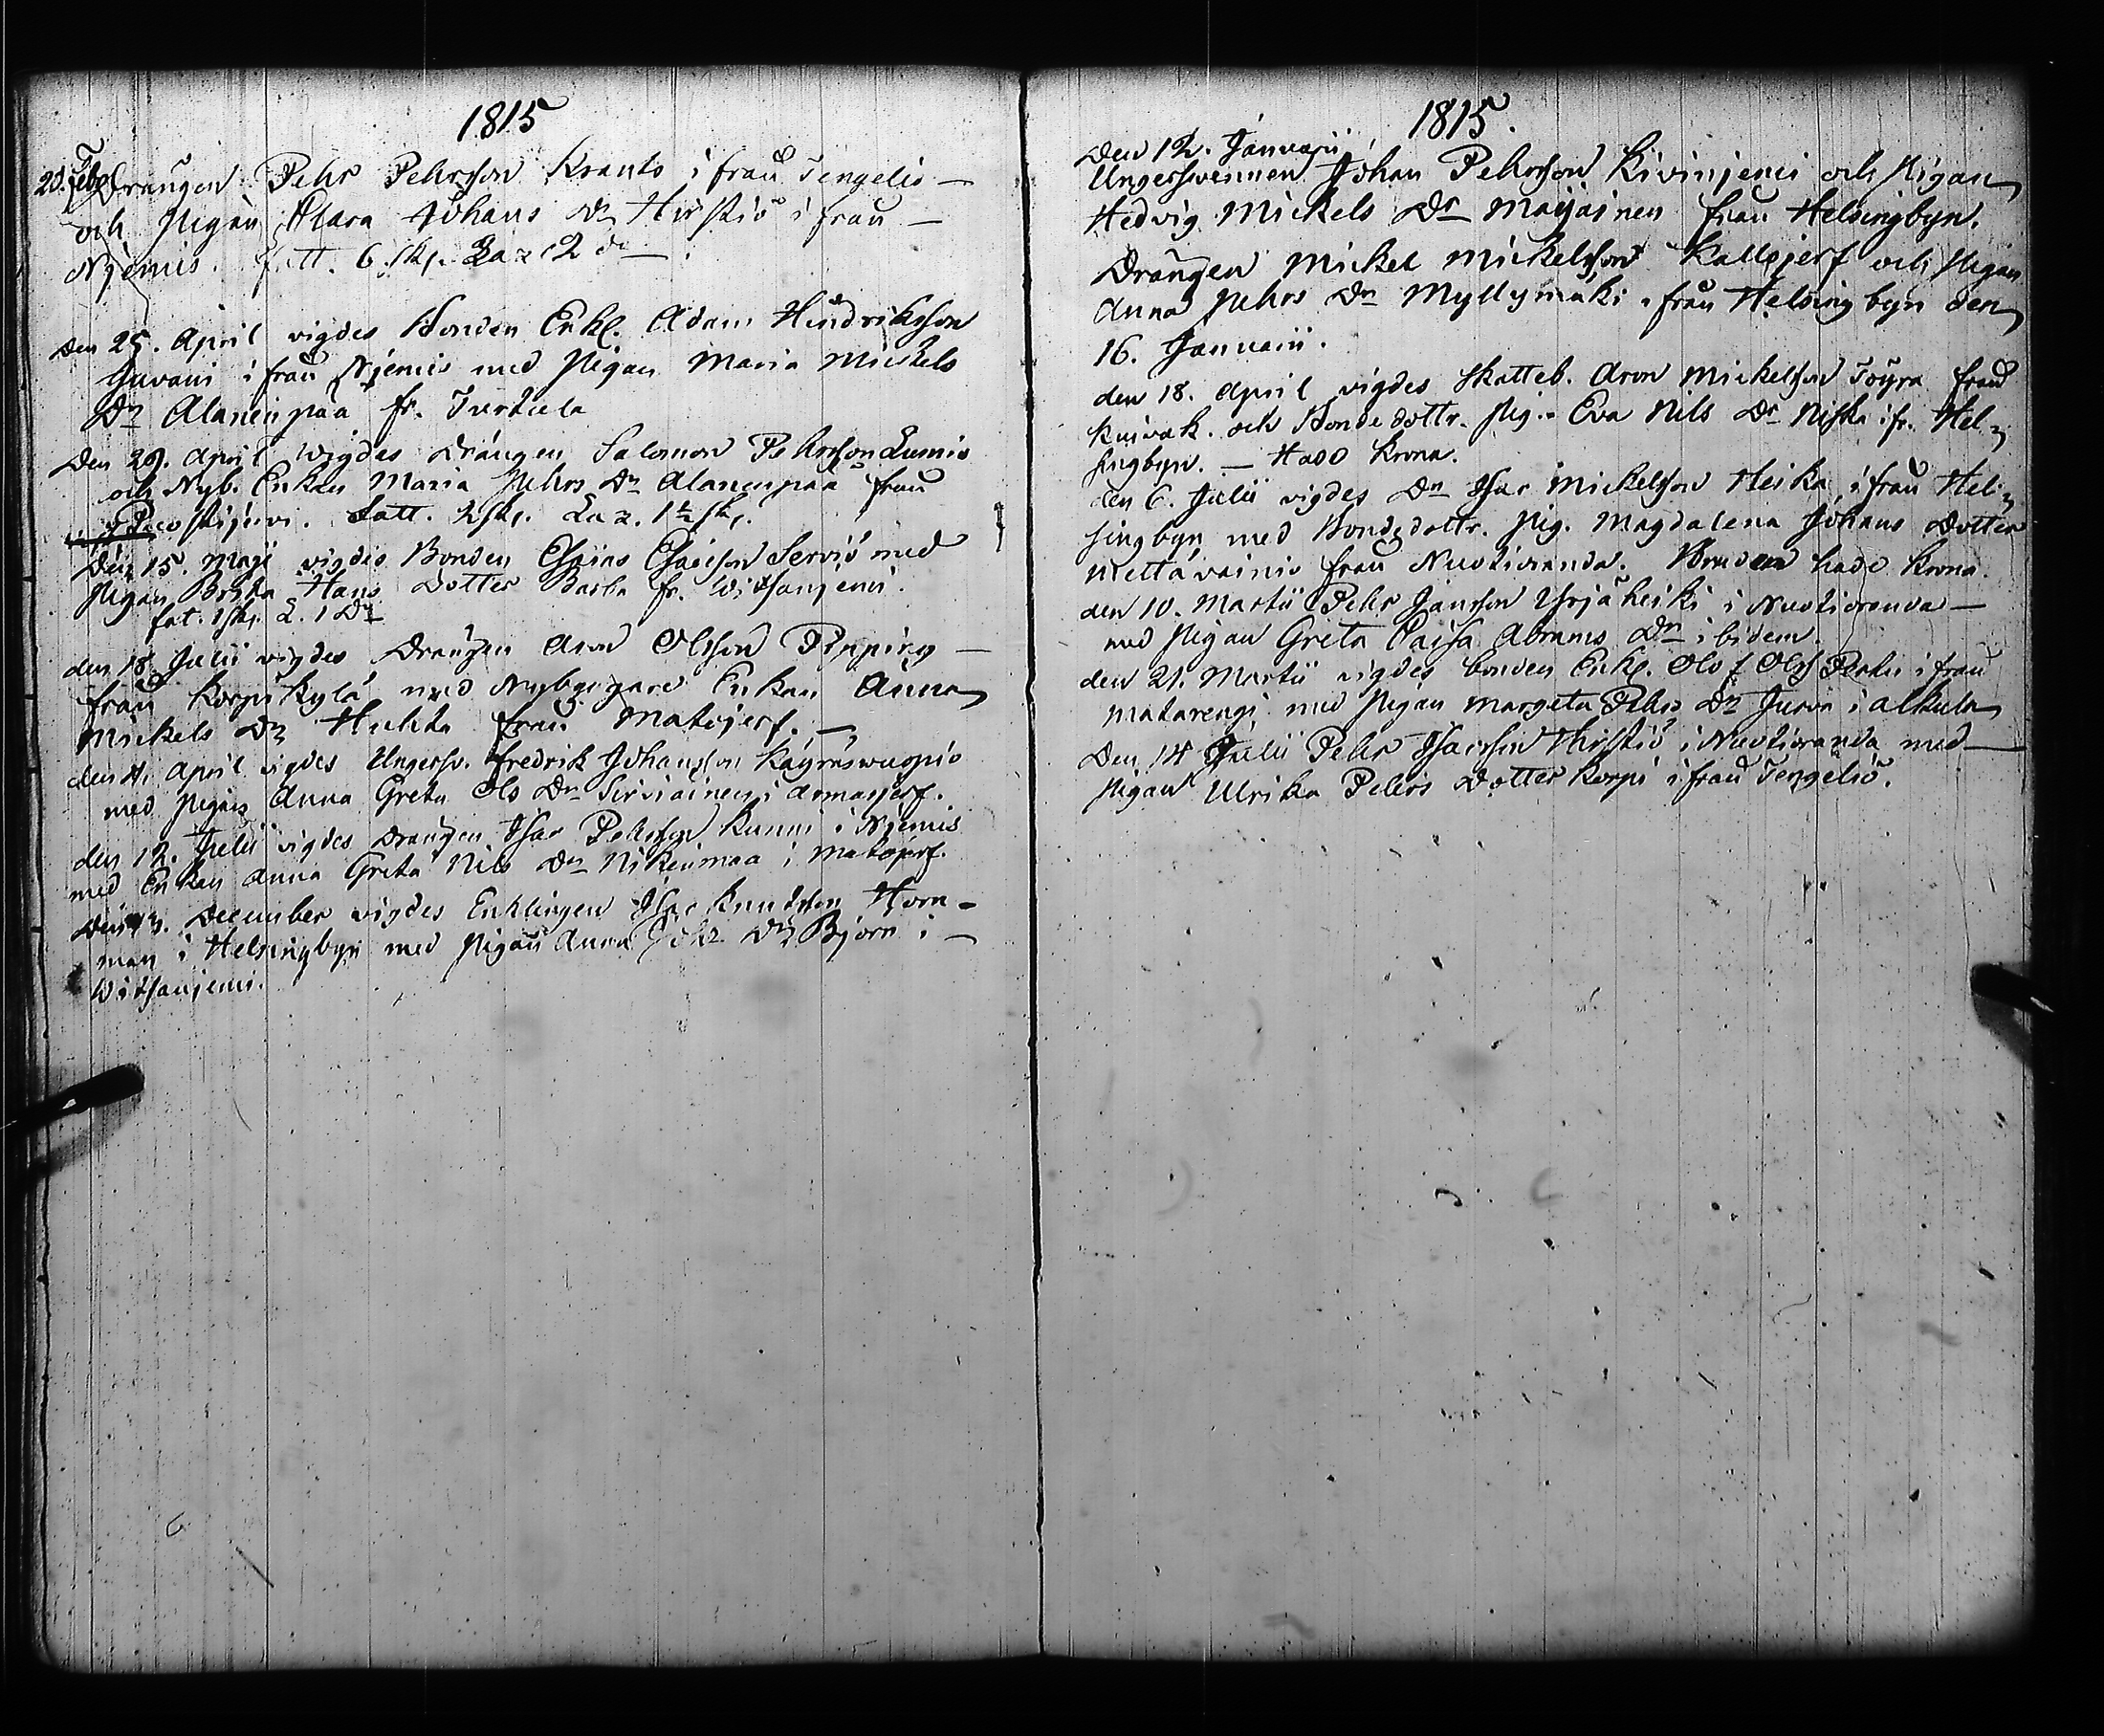 1815
20. Feb. Drängen Pehr Pehrsson Krants ifrån Tengeliö —
och Pigan Klara Johans Dr Hirstiö ifrån —
Njemis. Fatt. 6 sk. Laz 2 do —
Den 25. April vigdes Bonden Enkl. Adam Hindriksson
Juvani ifrån Njemis med Pigan Maria Mickels
Dr Alanenpää fr. Turtula
Den 29. April vigdes Drängen Salomon Pehrsson Lumio
och Nyb. Enkan Maria Pehrs Dr Alanenpää från
Fatt. 2 sk. Laz. 1½ sk.
Den 15. Maji vigdes Bonden Esaias Esaiesson Serviö med
Pigan Brita Hans Dotter Barba fr. Witsanjemi.
fat. 1 sk. L. 1 Do
den 18. Julii vigdes Drängen Aron Olsson Pipping —
från Korpikylä med Nybyggare Enkan Anna
Mickels Dr Huhta från Matojerf. —
den 4. April vigdes Ungersv. Fredrik Johansson Käyräswuopio
med Pigan Anna Greta Ols Dr Sirviainen i Armasjerf.
den 12. Julii vigdes Drängen Isac Pehrsson Kunni i Njemis
med Enkan Anna Greta Nils Dr Nikenmaa i Matojerf.
Den 13. December vigdes Enklingen Isac Knutsson Horn-
man i Helsingbyn med Pigan Anna Joh. Dr Björn i —
Witsanjemi.
1815.
Den 12. Januarii
Ungersvennen Johan Pehrsson Kivinjemi och Pigan
Hedvig Mickels Dr Maijainen från Helsingbyn.
Drängen Mickel Mickelsson Kallojerf och Pigan
Anna Pehrs Dr Myllymäki ifrån Helsingbyn den
16. Januarii.
den 18. April vigdes Skatteb. Aron Mickelsson Töyrä från
Kuivak. och Bondedottr. Pig. Eva Nils Dr Niska ifr. Hel-
singbyn. — Hade Krona.
den 6. Julii vigdes Dr Isac Mickelsson Heika ifrån Hel-
singbyn med Bondedottr. Pig. Magdalena Johans Dotter
Mettävainio från Nuotioranda. Bruden hade Krona.
den 10. Martii Pehr Jansson Yrjäheiki i Nuotioranda —
med Pigan Greta Caisa Abrams Dr ibidem.
den 21. Martii vigdes bonden Enkl. Olof Olss. Pertu ifrån
Matarengi med Pigan Margeta Pehrs Dr Juvo i Alkula
Den 14 Julii Pehr Isacsson Hirstiö i Nuotioranda med —
Pigan Ulrika Pehrs Dotter Korpi ifrån Tengeliö.